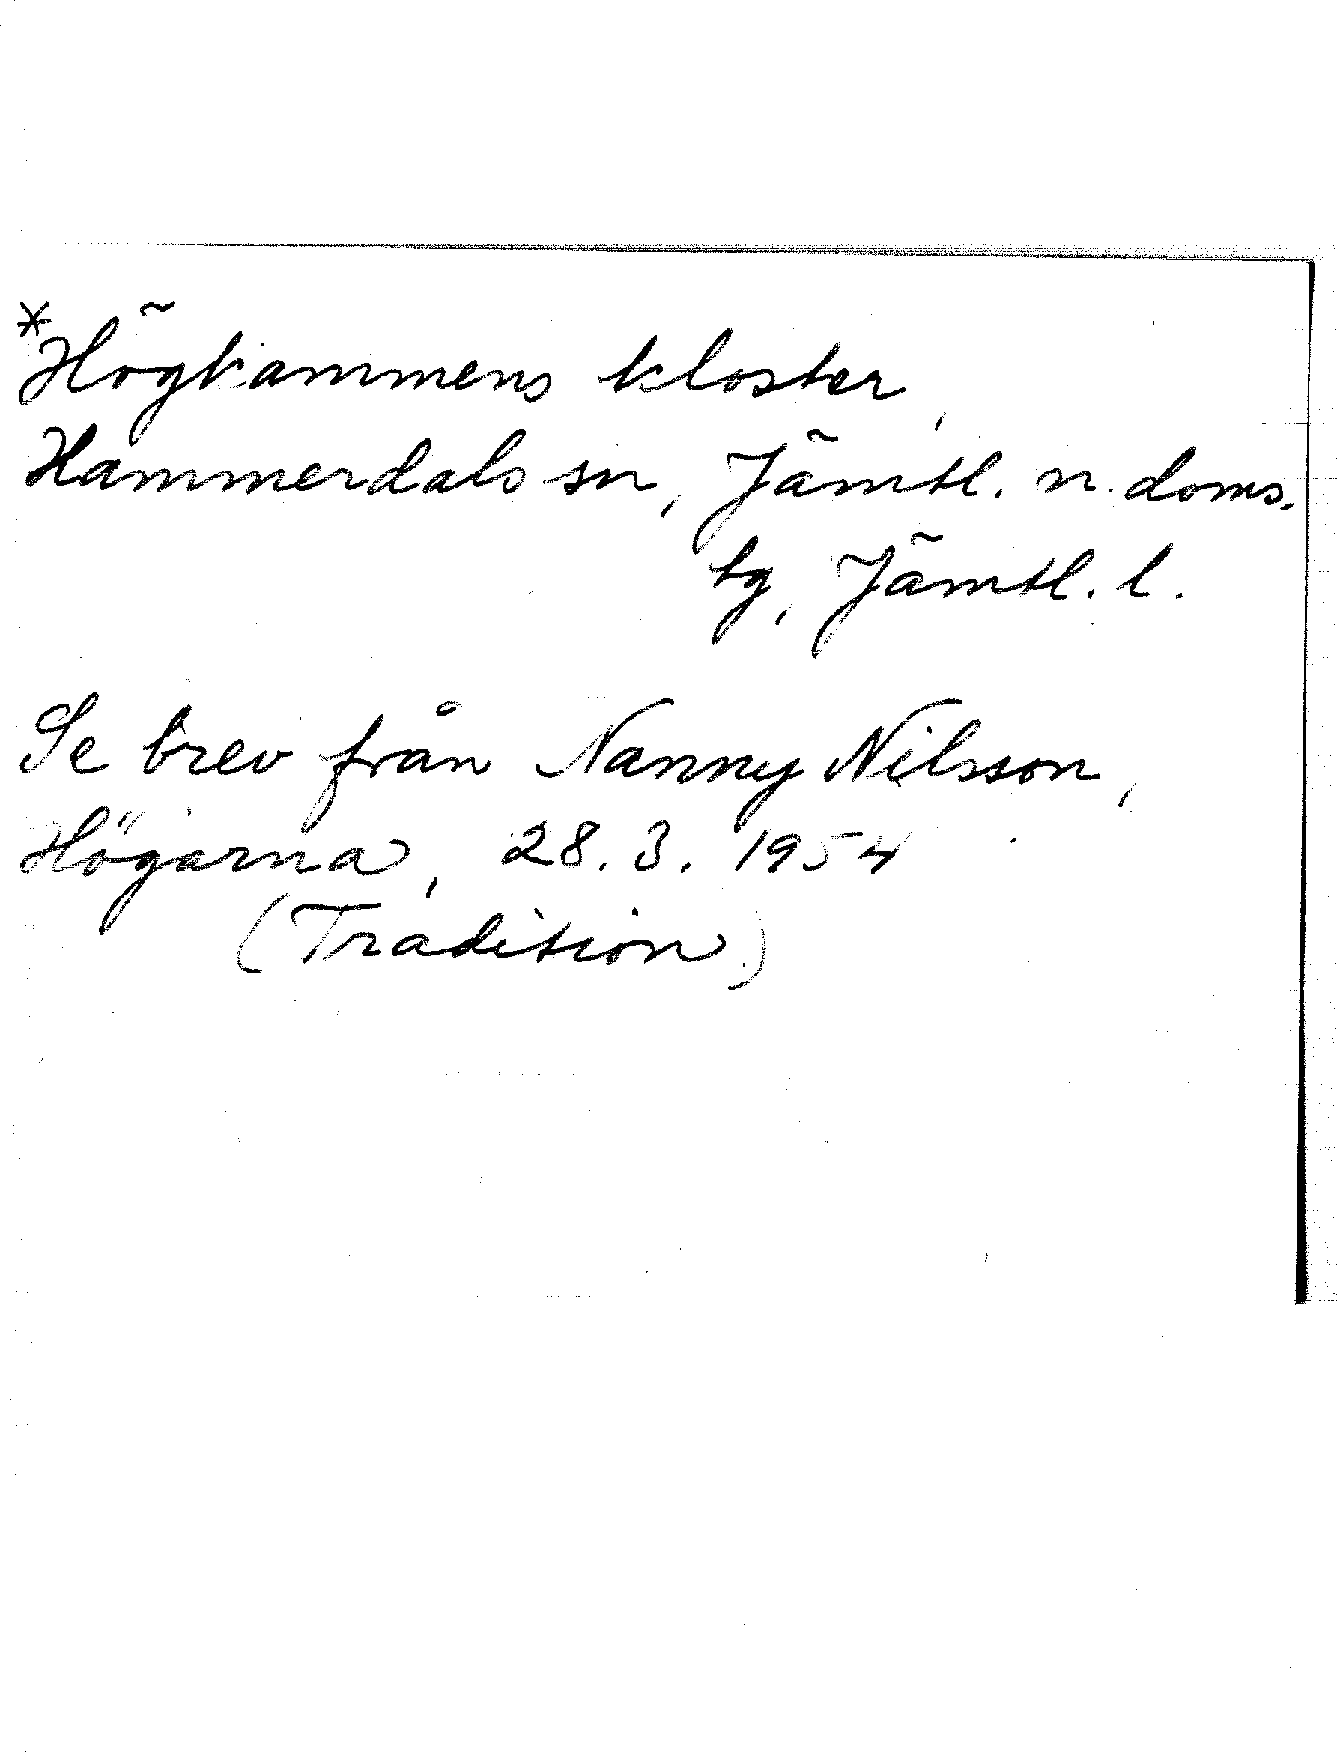 *Högkammens kloster,
Hammerdals sn, Jämtl. n. doms.
tg, Jämtl. l.
Se brev från Nanny Nilsson,
Högarna, 28. 3. 1954
(Tradition.)